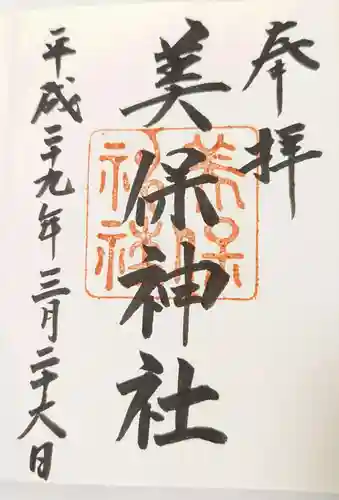 奉拝
美保神社
美保
神社
平成二十九年三月二十六日